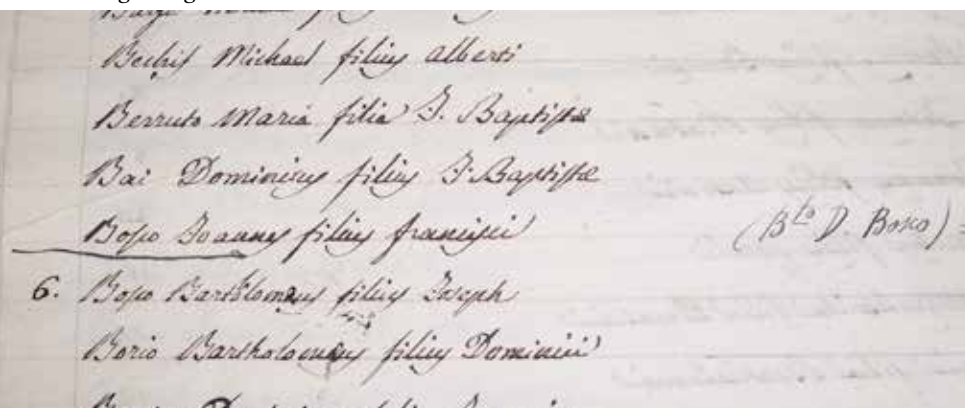 Bechis Michael filius Alberti
Berruto Maria filia J. Baptistæ
Bai Dominicus filius J. Baptistæ
Bosco Joannes filius francisci (B.to D. Bosco) =
6. Bosco Bartolomeus filius Joseph
Borio Bartholomeus filius Dominici